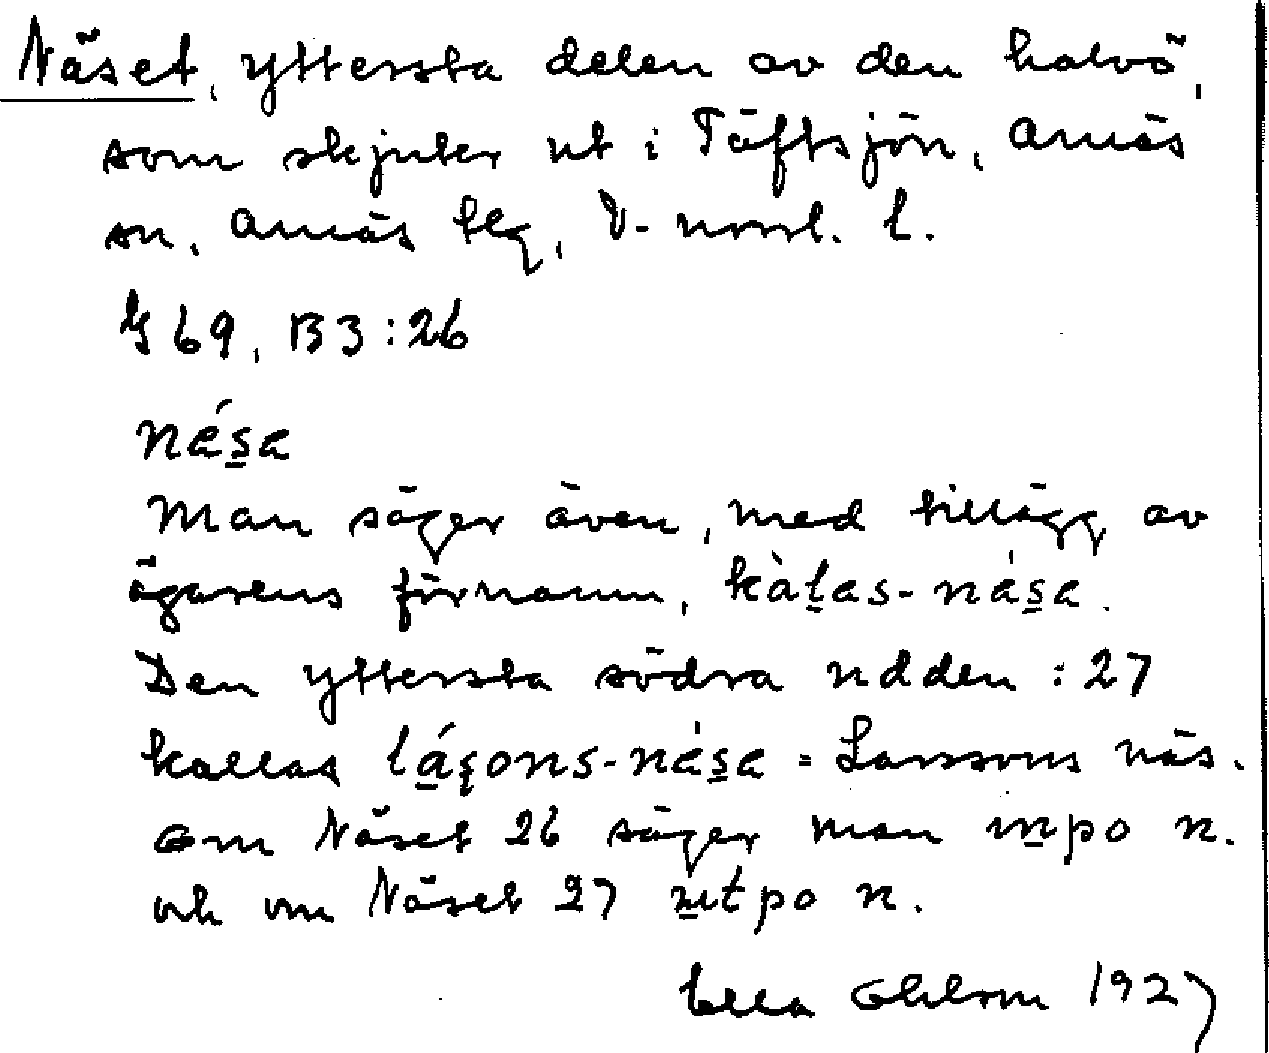 Näset, yttersta delen av den halvö,
som skjuter ut i Täftsjön, Arnäs
sn, Arnäs tlg, V-norrl. l.
G 69, B3:26
nása
Man säger även, med tillägg av
ägarens förnamn, kàlas-nása.
Den yttersta södra udden :27
kallas lásons-nása = Larssons näs.
Om Näset 26 säger man inpo n.
och om Näset 27 utpo n.
Ella Ohlson 1927